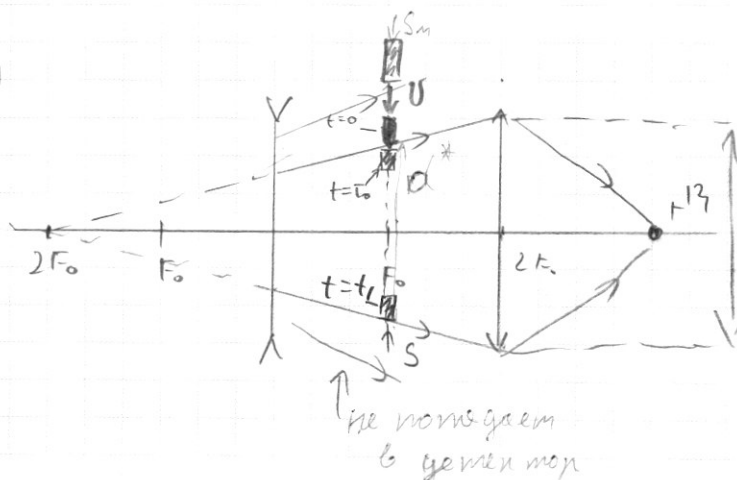 Sм
υ
t=0
t=τ₀
D*
2F₀
F₀
F₀
2F₀
t=t₁
S
не попадает
в детектор